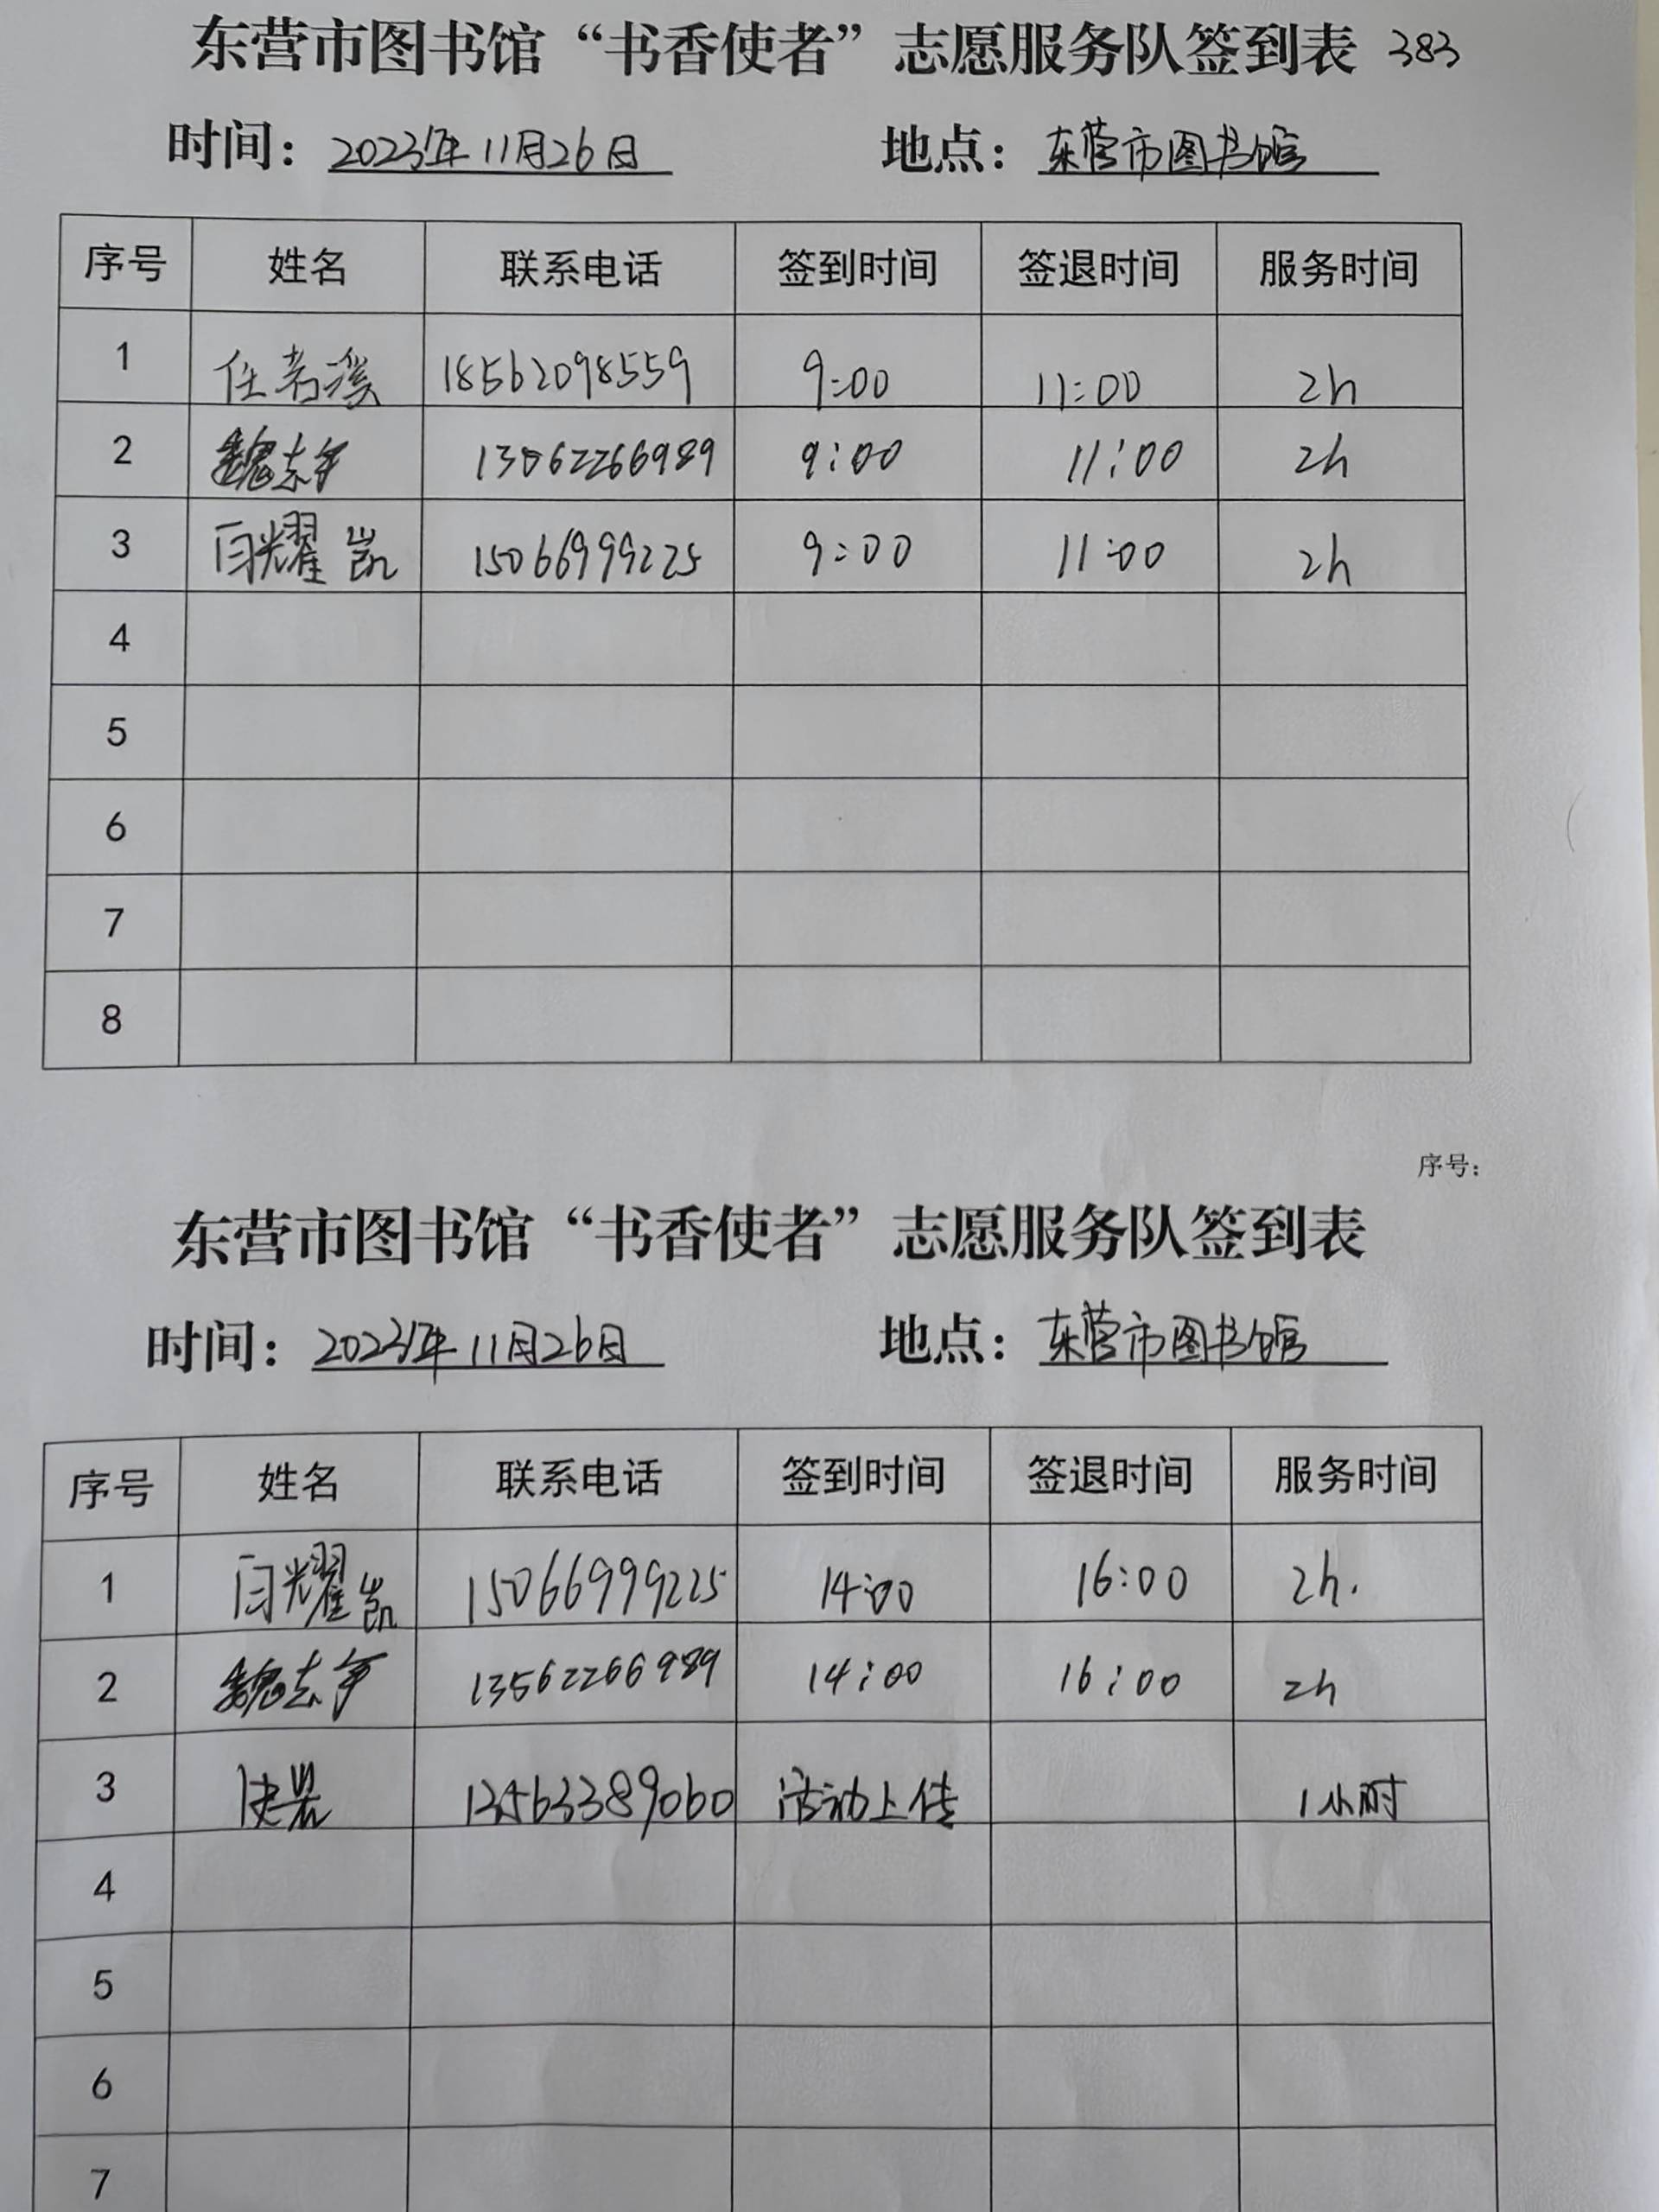 东营市图书馆“书香使者”志愿服务队签到表 383
时间：2023年11月26日 地点：东营市图书馆
序号 姓名 联系电话 签到时间 签退时间 服务时间
1 任若溪 18562098559 9:00 11:00 2h
2 魏志军 13562266989 9:00 11:00 2h
3 闫耀凯 15066999225 9:00 11:00 2h
4
5
6
7
8
序号：
东营市图书馆“书香使者”志愿服务队签到表
时间：2023年11月26日 地点：东营市图书馆
序号 姓名 联系电话 签到时间 签退时间 服务时间
1 闫耀凯 15066999225 14:00 16:00 2h.
2 魏志军 13562266989 14:00 16:00 2h
3 活动上传 1小时
4
5
6
7